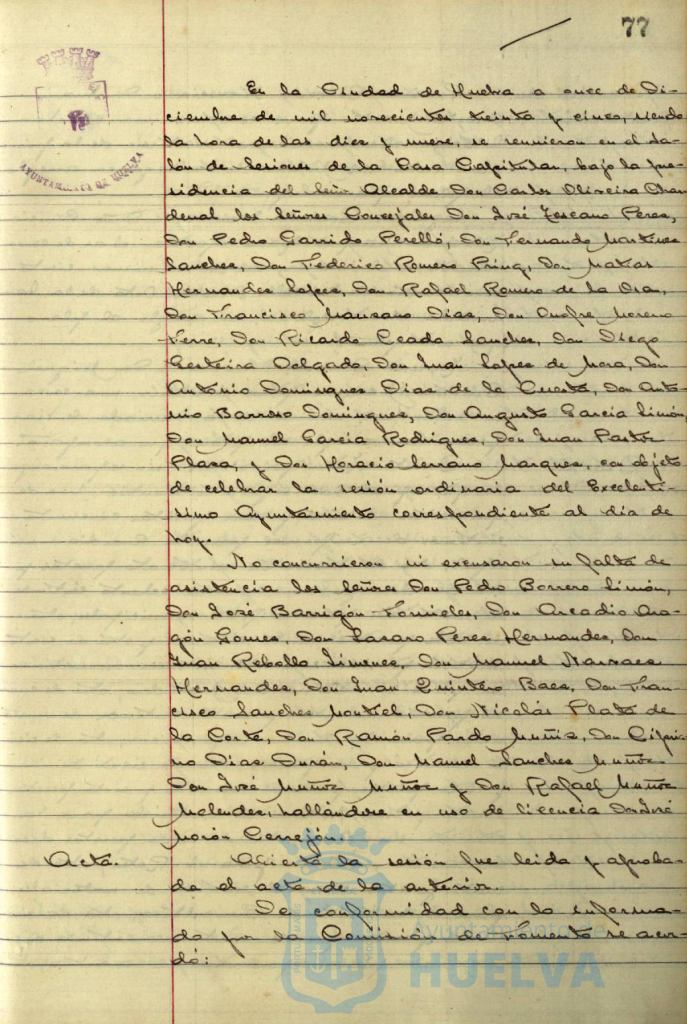 77
AYUNTAMIENTO DE HUELVA
En la Ciudad de Huelva a once de Di-
ciembre de mil novecientos treinta y cinco, siendo
la hora de las diez y nueve, se reunieron en el Sa-
lón de Sesiones de la Casa Capitular, bajo la pre-
sidencia del Señor Alcalde Don Carlos Oliveira Chan
denal los Señores Concejales Don José Toscano Peres,
Don Pedro Garrido Perelló, Don Fernando Martines
Sanches, Don Federico Romero Prinq, Don Matias
Hernandes Lopes, Don Rafael Romero de la Osa,
Don Francisco Manzano Dias, Don Onofre Moreno
Ferre, Don Ricardo Ceada Sanches, Don Diego
Gesteira Delgado, Don Juan Lopes de Mora, Don
Antonio Domingues Dias de la Cuesta, Don Anto-
nio Barroso Domingues, Don Augusto Garcia Simón,
Don Manuel Garcia Rodrigues, Don Juan Pastor
Plaza, y Don Horacio Serrano Marques, con objeto
de celebrar la sesión ordinaria del Excelenti-
simo Ayuntamiento correspondiente al dia de
hoy.
No concurrieron ni excusaron su falta de
asistencia los señores Don Pedro Borrero Limón,
Don José Barrigón Fornieles, Don Arcadio Ara-
gón Gomes, Don Lasaro Peres Hernandes, Don
Juan Rebollo Jimenes, Don Manuel Narvaes
Hernandes, Don Juan Quintero Baes, Don Fran-
cisco Sanches Montiel, Don Nicolás Plata de
la Corte, Don Ramón Pardo Muñiz, Don Cipria
no Dias Durán, Don Manuel Sanches Muñoz
Don José Muñoz Muñoz y Don Rafael Muñoz
Melendes, hallándose en uso de licencia Don José
Morón Cerrejón.
Acta.
Abierta la sesión fue leida y aproba-
da el acta de la anterior.
De conformidad con lo informa-
do por la Comisión de Fomento se acor-
dó:
Ayuntamiento de
HUELVA